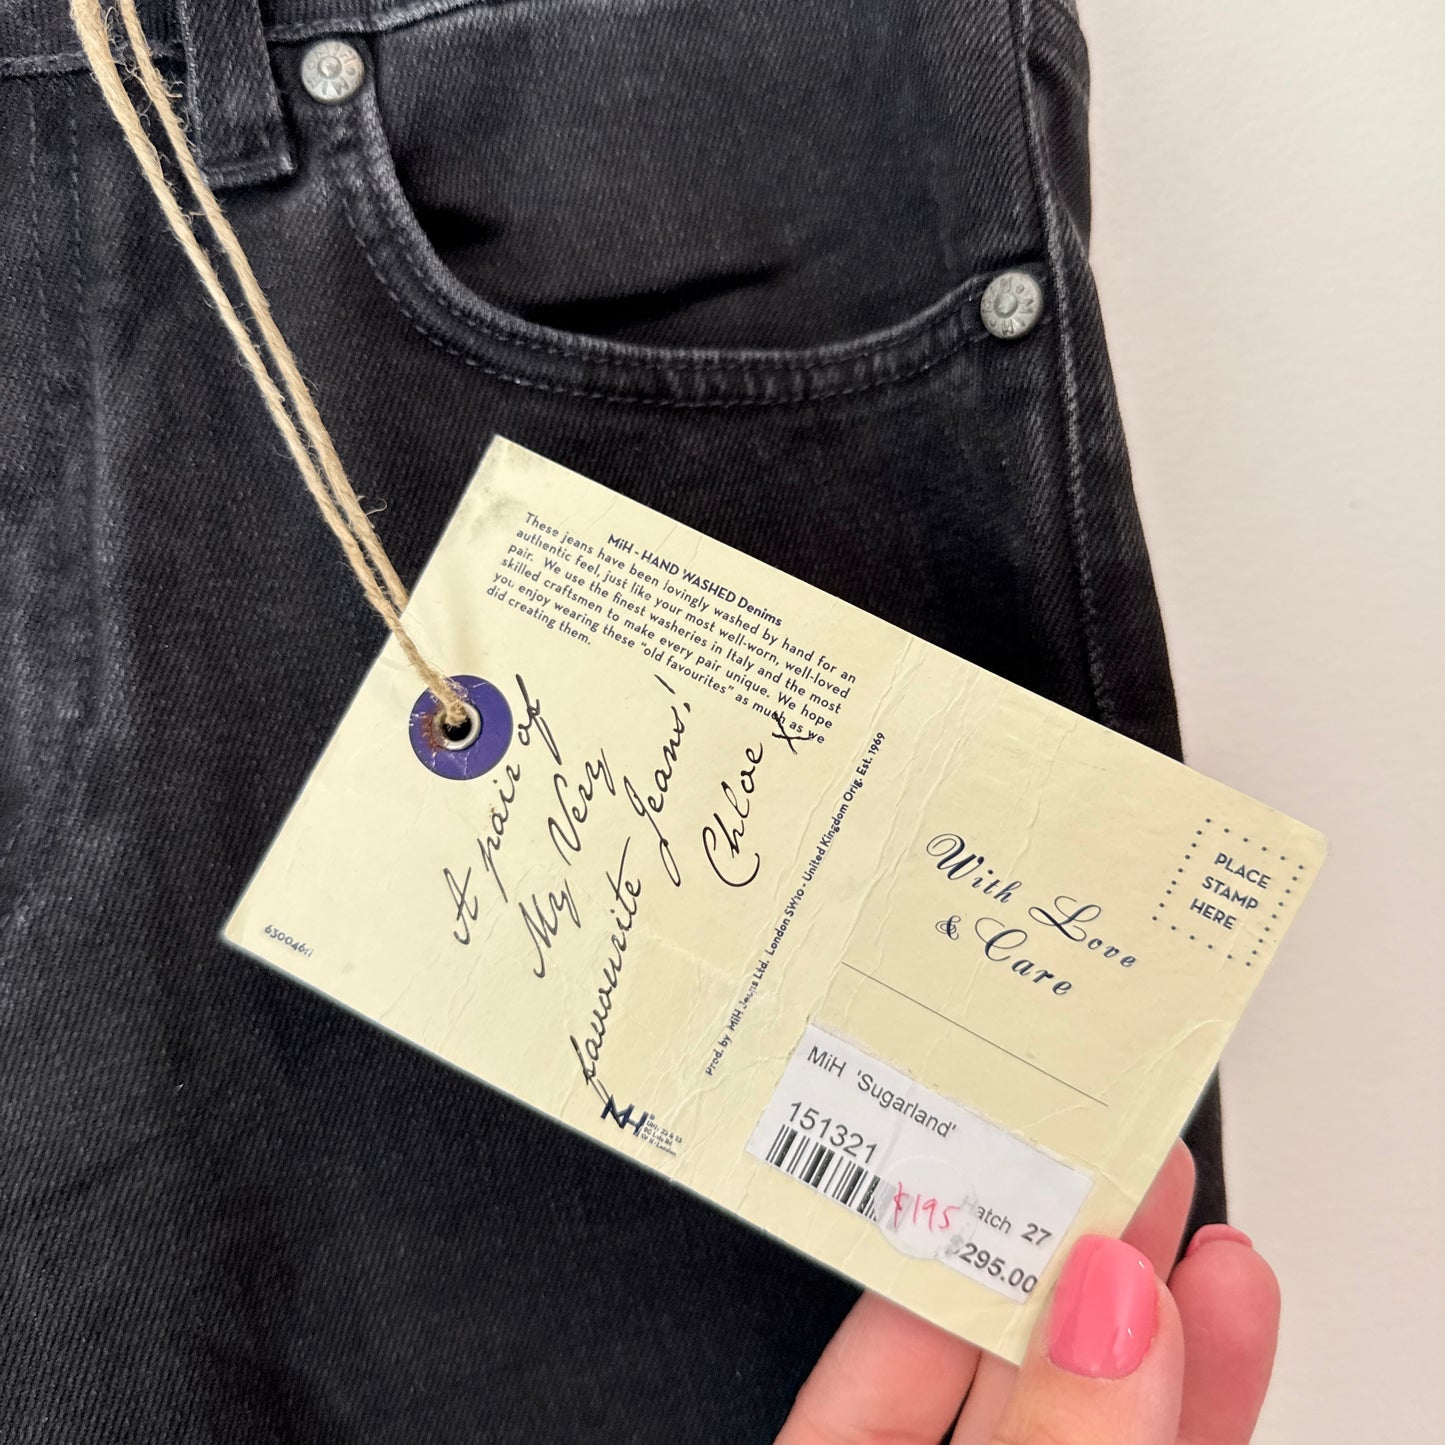 MiH - HAND WASHED Denims
These jeans have been lovingly washed by hand for an
authentic feel, just like your most well-worn, well-loved
pair. We use the finest washeries in Italy and the most
skilled craftsmen to make every pair unique. We hope
you enjoy wearing these "old favourites" as much as we
did creating them.
A pair of
My Very
favourite Jeans!
Chloe X
630046:1
MiH
Prod. by MiH Jeans Ltd. London SW10 - United Kingdom Orig. Est. 1969
With Love
& Care
PLACE
STAMP
HERE
MiH 'Sugarland'
151321
Hatch 27
$195
$295.00